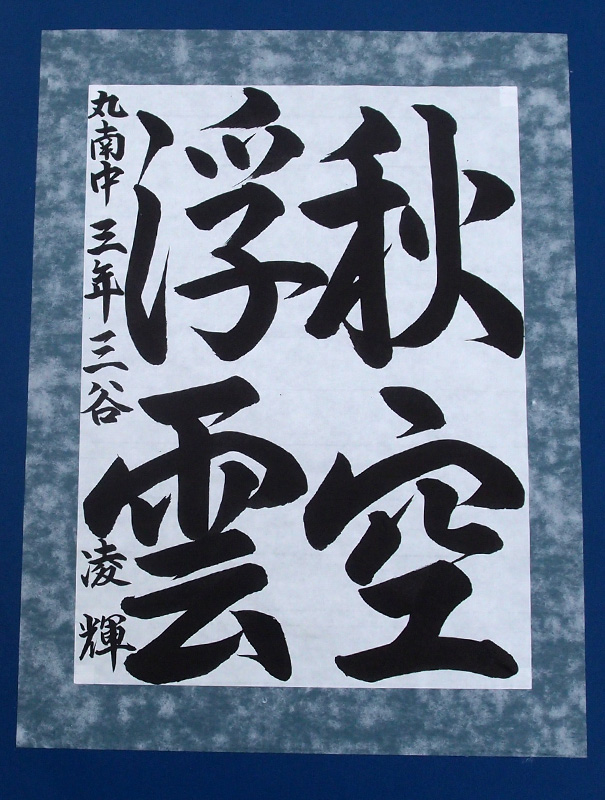 秋空
浮雲
丸南中 三年 三谷 凌輝